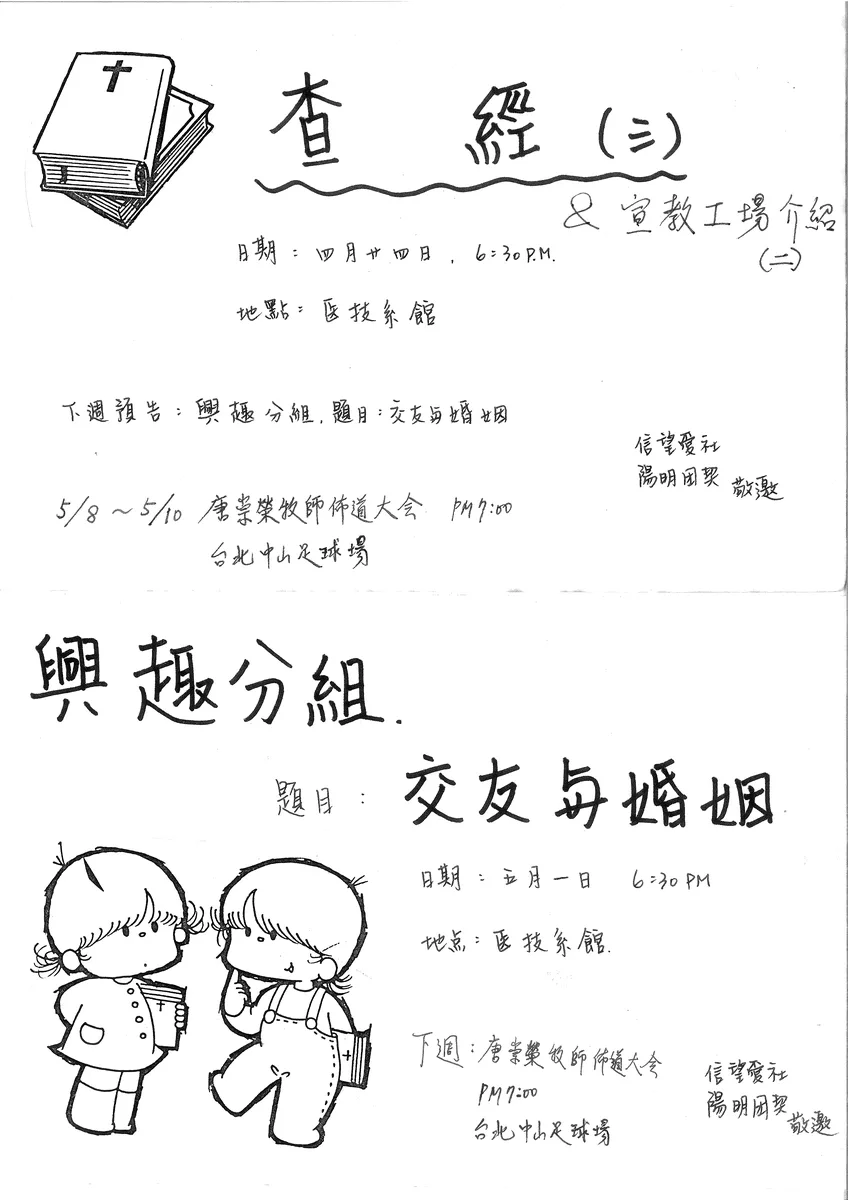 查 經 (三)
& 宣教工場介紹
(二)
日期：四月廿四日，6:30 P.M.
地點：医技系館
下週預告：興趣分組，題目：交友与婚姻
信望愛社
陽明团契 敬邀
5/8～5/10 唐崇榮牧師佈道大会 PM 7:00
台北中山足球場
興趣分組.
題目：交友与婚姻
日期：五月一日 6:30 PM
地点：医技系館.
下週：唐崇榮牧師佈道大会
PM 7:00
台北中山足球場
信望愛社
陽明团契
敬邀